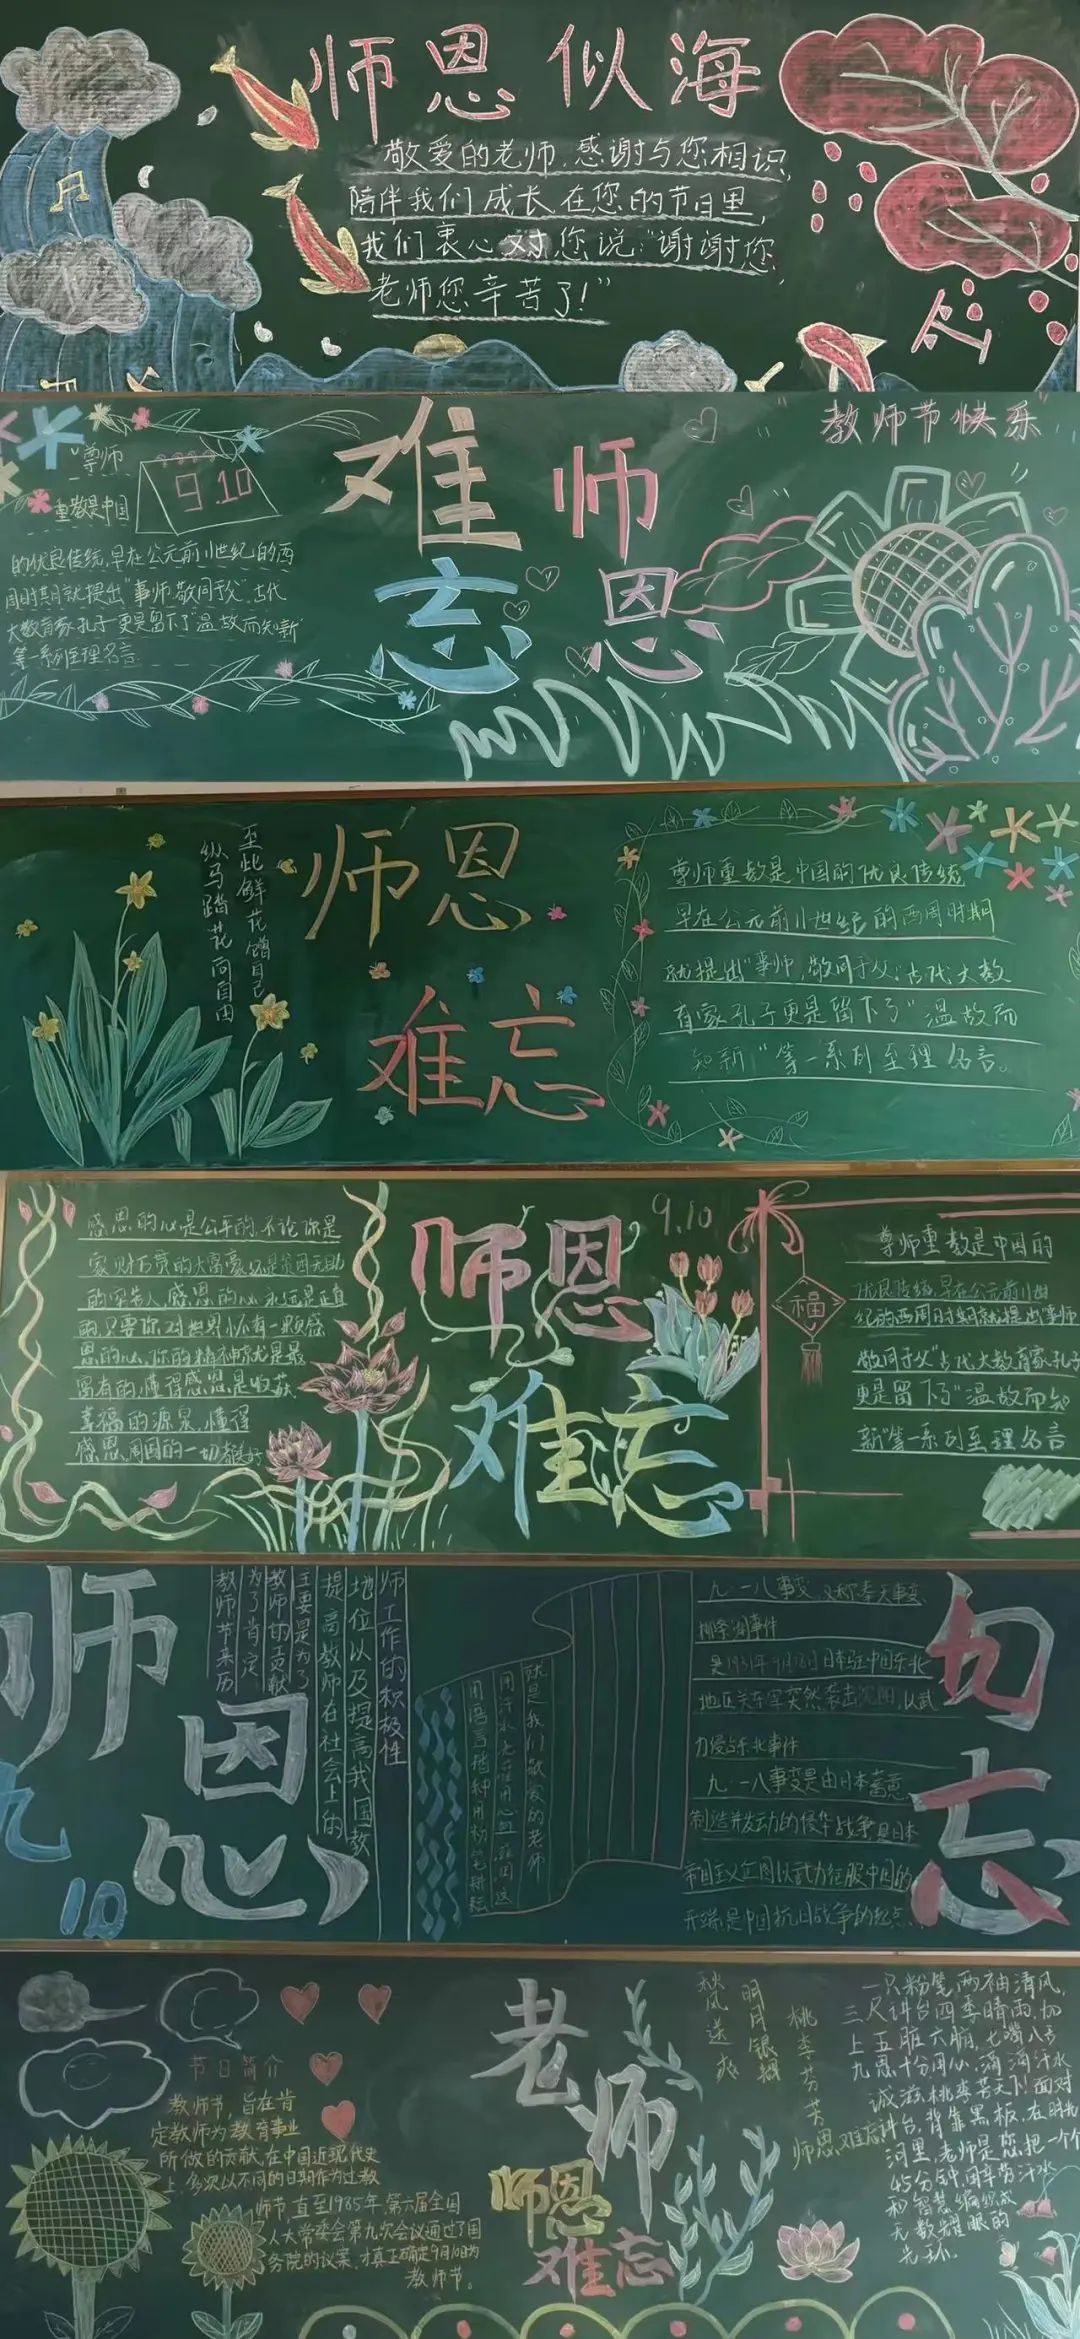 师恩似海
敬爱的老师,感谢与您相识,
陪伴我们成长,在您的节日里,
我们衷心对您说:"谢谢您,
老师您辛苦了!"
教师节快乐
尊师
9.10
重教是中国
的优良传统,早在公元前11世纪的西
周时期就提出"事师,敬同于父",古代
大教育家孔子更是留下了"温故而知新"
等一系列至理名言
难
忘
师
恩
至此鲜花赠自己
纵马踏花向自由
师恩
难忘
尊师重教是中国的优良传统
早在公元前11世纪的西周时期
就提出"事师,敬同于父",古代大教
育家孔子更是留下了"温故而
知新"等一系列至理名言。
感恩的心是公平的,不论你是
家财万贯的大富豪,还是贫困无助
的穷苦人,感恩的心永远是正直
的,只要你对世界怀有一颗感
恩的心,你的精神就是最
富有的,懂得感恩是收获
幸福的源泉,懂得
感恩,周围的一切都美好
师恩
难忘
9.10
福
尊师重教是中国的
优良传统,早在公元前11世
纪的西周时期就提出"事师
敬同于父"古代大教育家孔子
更是留下了"温故而知
新"等一系列至理名言
师
恩
九
10
教师节来历
为了肯定
教师的贡献
主要是为了
提高教师在社会上的
地位以及提高我国教
师工作的积极性
就是我们敬爱的老师
用语言播种用粉笔耕耘
九·一八事变,又称奉天事变
柳条湖事件
是1931年9月18日日本驻中国东北
地区关东军突然袭击沈阳,以武
力侵占东北事件
九·一八事变是由日本蓄意
制造并发动的侵华战争是日本
帝国主义企图以武力征服中国的
开端,是中国抗日战争的起点
勿
忘
节日简介
教师节,旨在肯
定教师为教育事业
所做的贡献,在中国近现代史
上,多次以不同的日期作为过教
师节,直至1985年,第六届全国
人大常委会第九次会议通过了国
务院的议案,才真正确定9月10日为
教师节。
老师
师恩
难忘
秋风送爽
明月银辉
桃李芬芳
师恩难忘
一只粉笔两袖清风,
三尺讲台四季晴雨,加
上五脏六腑七嘴八舌
九思十分用心,滴滴汗水
诚滋桃李芳天下!面对
讲台,背靠黑板,在时光
河里,老师是您,把一个个
45分钟,用辛劳汗水
和智慧编织成
无数耀眼的
光环